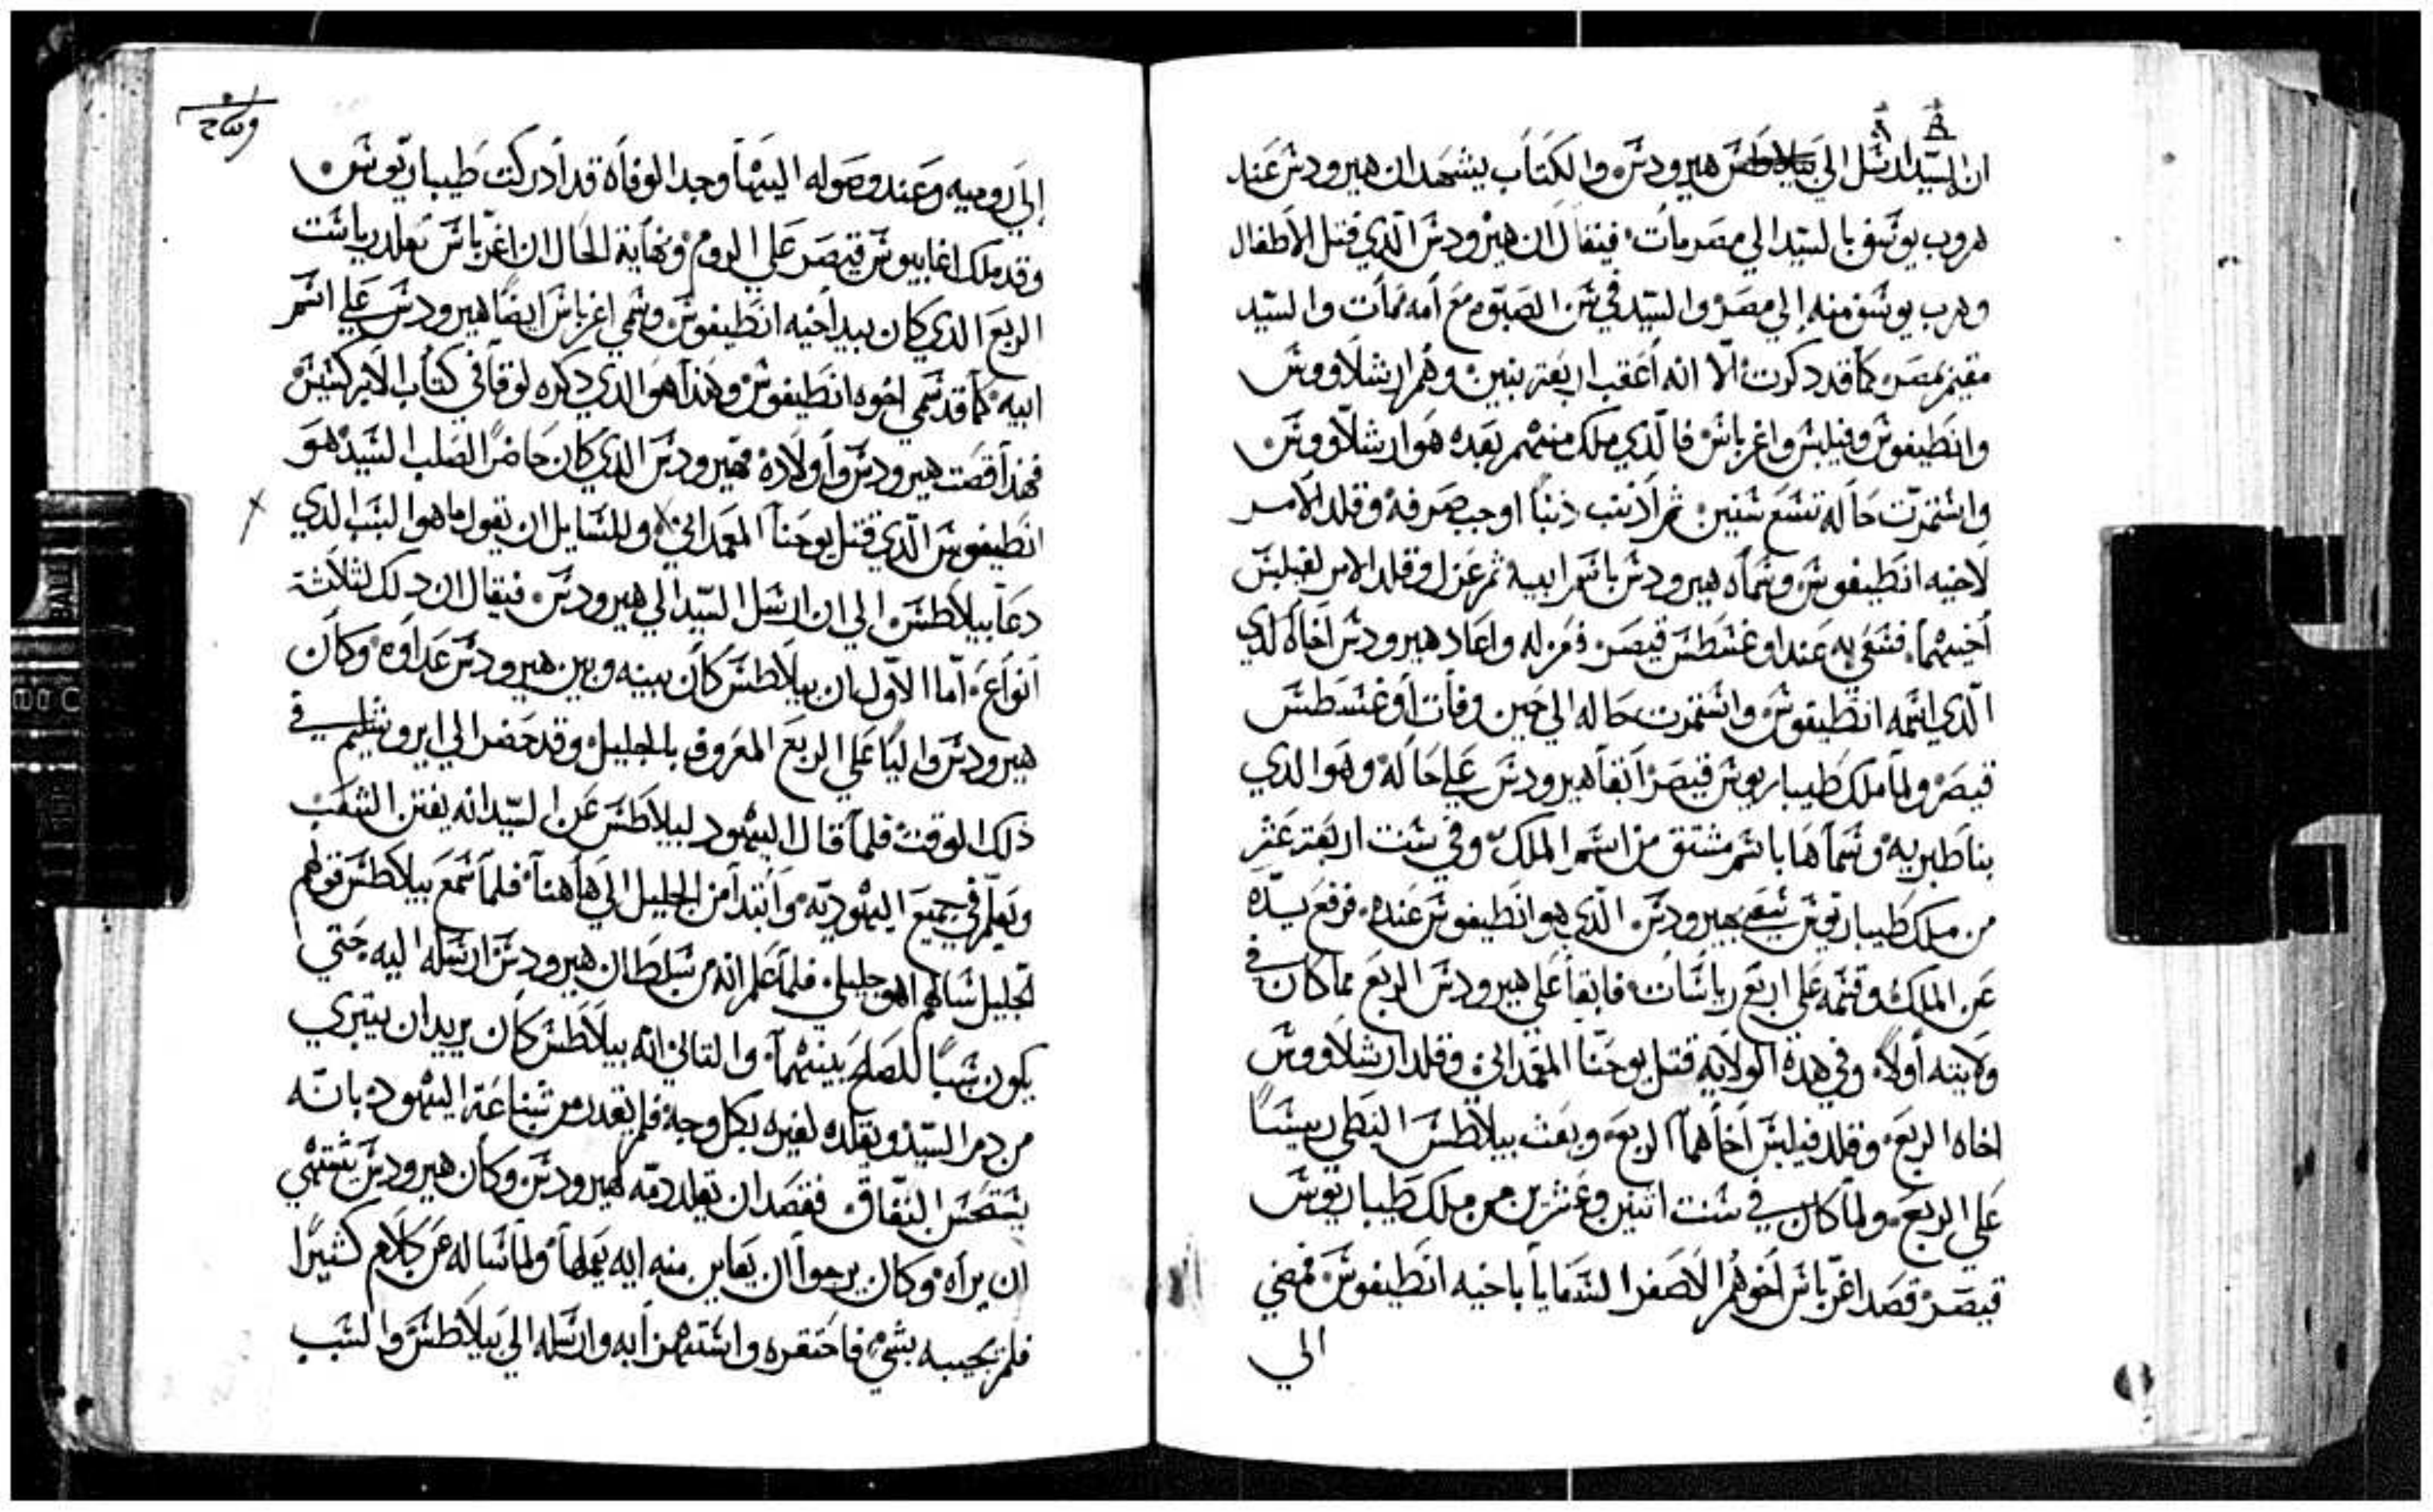 ان السيد ارشل الي بيلاطش هيرودش والكتاب يشهد ان هيرودش عند
هروب يوشف بالسيد الي مصر مات فيقال ان هيرودش الذي قتل الاطفال
وهرب يوشف منه إلي مصر والسيد في شن الصبوه مع أمه مات والسيد
مقيم بمصر كما قد دكرت الا انه أعقب اربعة بنين وهم ارشلاووش
وانطيفوش وفيلبش واغرباش فالذي ملك منهم بعده هو ارشلاووش
واشتمرت حاله تشع شنين ثم اذنب ذنبا اوجب صرفه وقلد الامر
لاخيه انطيفوش وشماه هيرودش باشم ابيه ثم عزل وقلد الامر لفيلبش
أخيهما فشعي به عند اوغشطش قيصر فعزله واعاد هيرودش اخاه الذي
الذي اشمه انطيفوش واشتمرت حاله الي حين وفات أوغشطش
قيصر ولما ملك طيباريوش قيصر أبقا هيرودش علي حاله وهو الدي
بنا طبريه وشماها باشم مشتق من اشم الملك وفي شنت اربعة عشر
من ملك طيباريوش شعي بهيرودش الذي هو انطيفوش عنده فرفع يده
عن الملك وقشمه علي اربع رياشات فابقا علي هيرودش الربع مما كان في
ولايته أولا وفي هذة الولاية قتل يوحنا المعمداني وقلد ارشلاووش
اخاه الربع وقلد فيلبش أخاهما الربع وبعث بيلاطش النبطي رييشا
علي الربع ولما كان في شنت اتنين وعشرين من ملك طيباريوش
قيصر قصد اغرباش أخوهم الاصغر الشعايا باخيه انطيفوش فمضي
الي
إلي روميه وعند وصوله اليها وجد الوفاه قد أدركت طيباريوش
وقد ملك اغاييوش قيصر علي الروم ونهاية الحال ان اغرباش تقلد رياشت
الربع الدي كان بيد أخيه انطيفوش وشمي اغرباش ايضا هيرودش علي اشم
ابيه كما قد شمي اخوه انطيفوش وهذا هو الدي دكره لوقا في كتاب الابركشيش
فهذا قصت هيرودش وأولاده فهيرودش الدي كان حاضر الصلب السيد هو
انطيفوش الذي قتل يوحنا المعمداني وللشايل ان يقول ما هو الشبب الدي
دعا بيلاطش الي ان ارشل السيد الي هيرودش فيقال ان دلك لثلاثة
أنواع أما الاول ان بيلاطش كان بينه وبين هيرودش عداوه وكان
هيرودش واليا علي الربع المعروف بالجليل وقد حضر الي ايروشليم في
ذلك الوقت فلما قال اليهود لبيلاطش عن السيد انه يفتن الشعب
ويعلم في جميع اليهوديه وابتدا من الجليل الي هاهنا فلما شمع بيلاطش قولهم
الجليل شالهم اهو جليلي فلما علم انه من شلطان هيرودش ارشله اليه حتي
يكون شببا للصلح بينهما والتاني انه بيلاطش كان يريد ان يتبري
من دم السيد ويقلده لغيره بكل وجه فلم يقدر من شناعة اليهود بانه
يشتحش النفاق فقصد ان يقلد دمه لهيرودش وكان هيرودش يشتهي
ان يراه وكان يرجوا ان يعاين منه ايه يعملها ولما شاله عن كلام كثيرا
فلم يجيبه بشي فاحتقره واشتهزا به وارشله الي بيلاطش والشبب